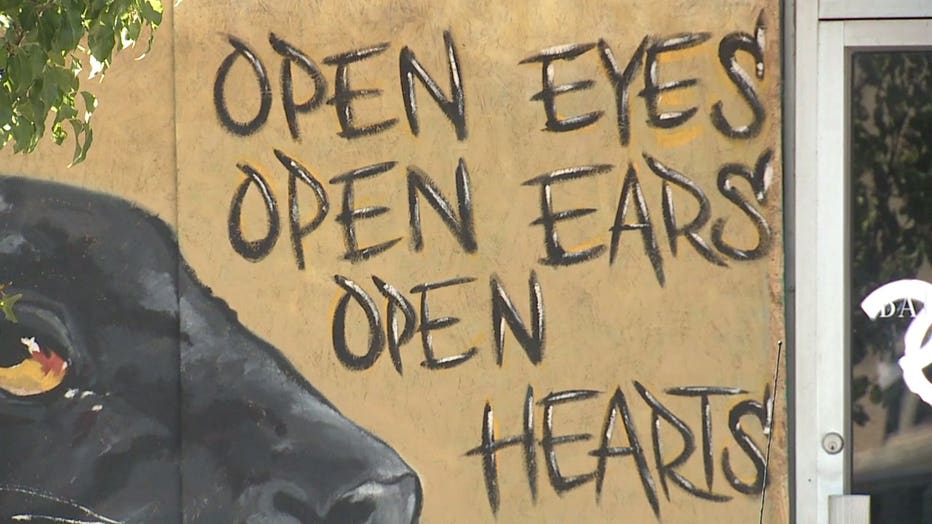 OPEN EYES
OPEN EARS
OPEN
HEARTS
DA